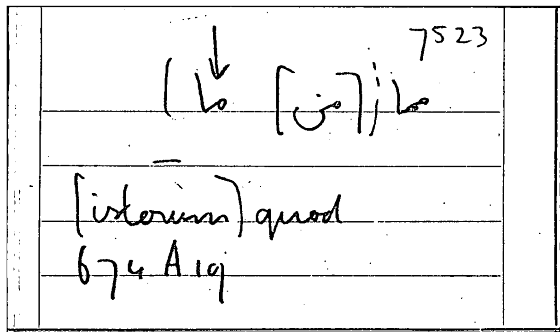 7523
ما ; [من] ما
[istorum] quod
674 A 19